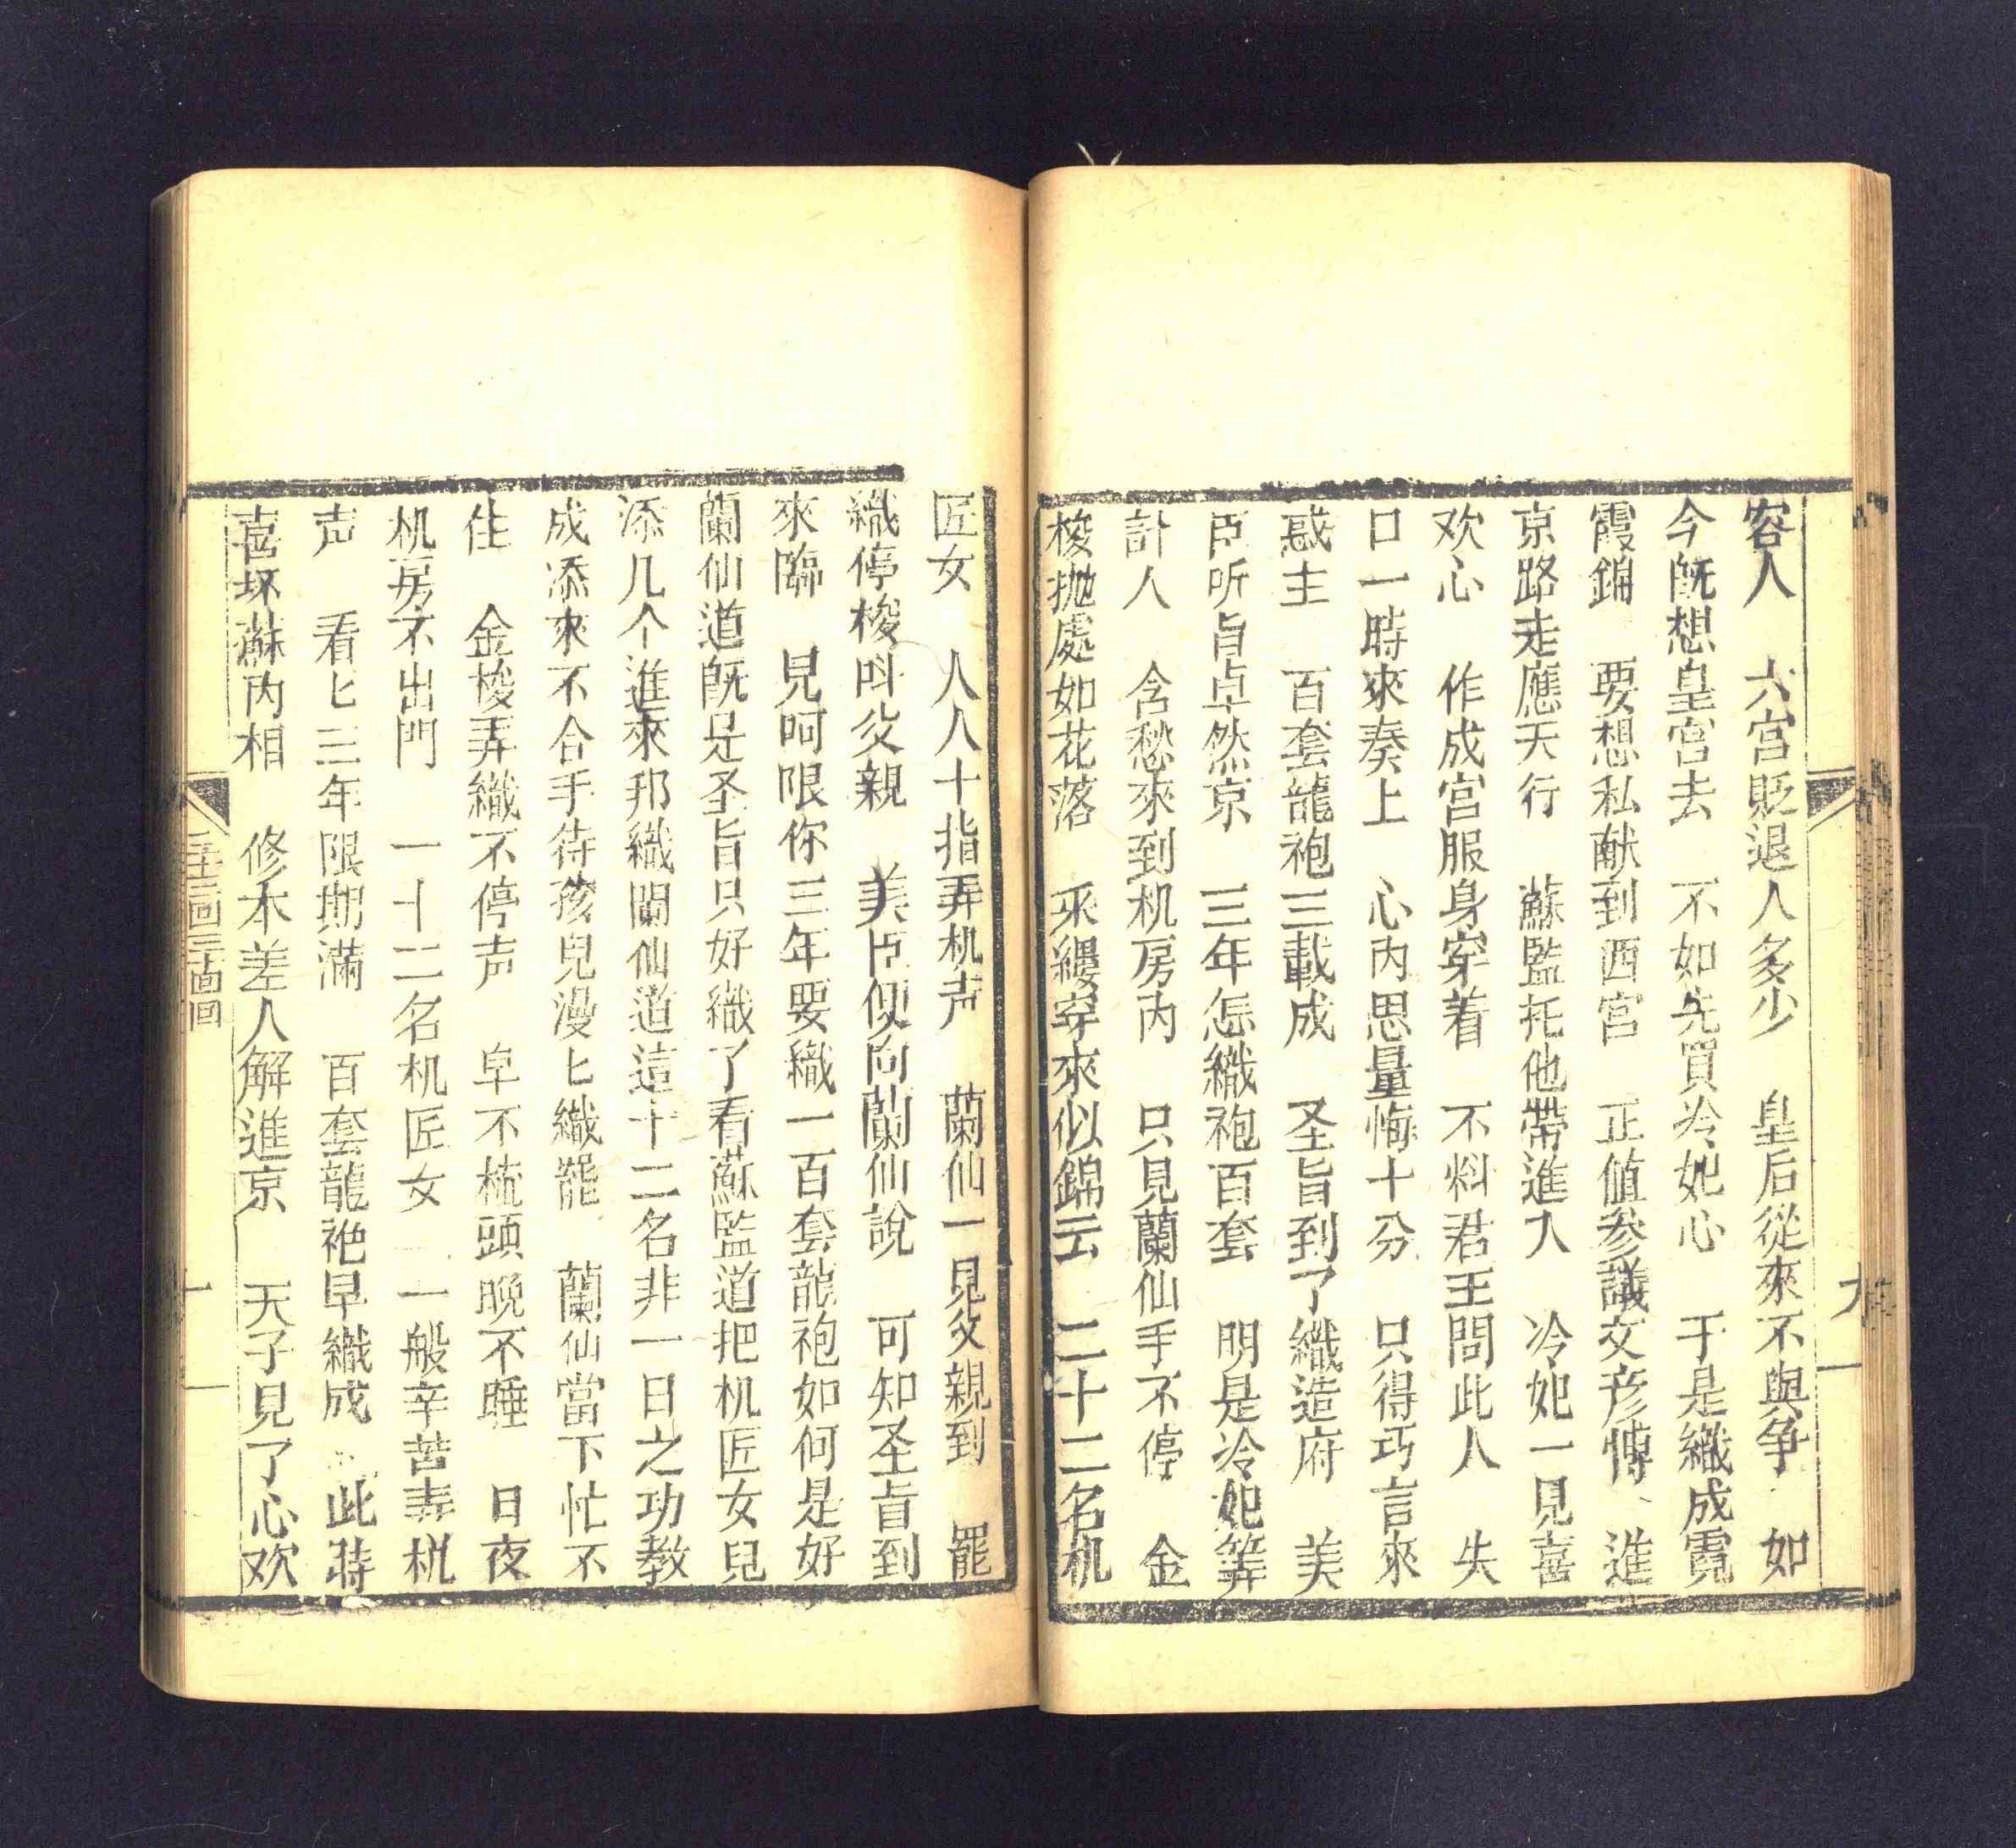 容人　六宮貶退人多少　皇后從來不與争　如
今旣想皇宮去　不如先買冷妃心　于是織成霓
霞錦　要想私献到西宮　正值参議文彦博　進
京路走應天行　蘇監托他帶進入　冷妃一見喜
欢心　作成宮服身穿着　不料君王問此人　失
口一時來奏上　心內思量悔十分　只得巧言來
惑主　百套龍袍三載成　圣旨到了織造府　美
臣听旨卓然京　三年怎織袍百套　明是冷妃筭
計人　含愁來到机房內　只見蘭仙手不停　金
梭拋處如花落　采縷穿來似錦云　二十二名机
九
匠女　人人十指弄机声　蘭仙一見父親到　罷
織停梭叫父親　美臣便向蘭仙說　可知圣旨到
來臨　見呵限你三年要織一百套龍袍如何是好
蘭仙道旣是圣旨只好織了看蘇監道把机匠女兒
添几个進來邦織蘭仙道這十二名非一日之功教
成添來不合手待孩兒漫匕織罷　蘭仙當下忙不
住　金梭弄織不停声　早不梳頭晚不睡　日夜
机房不出門　一十二名机匠女　一般辛苦弄机
声　看匕三年限期滿　百套龍袍早織成　此時
喜坏蘇內相　修本差人解進京　天子見了心欢